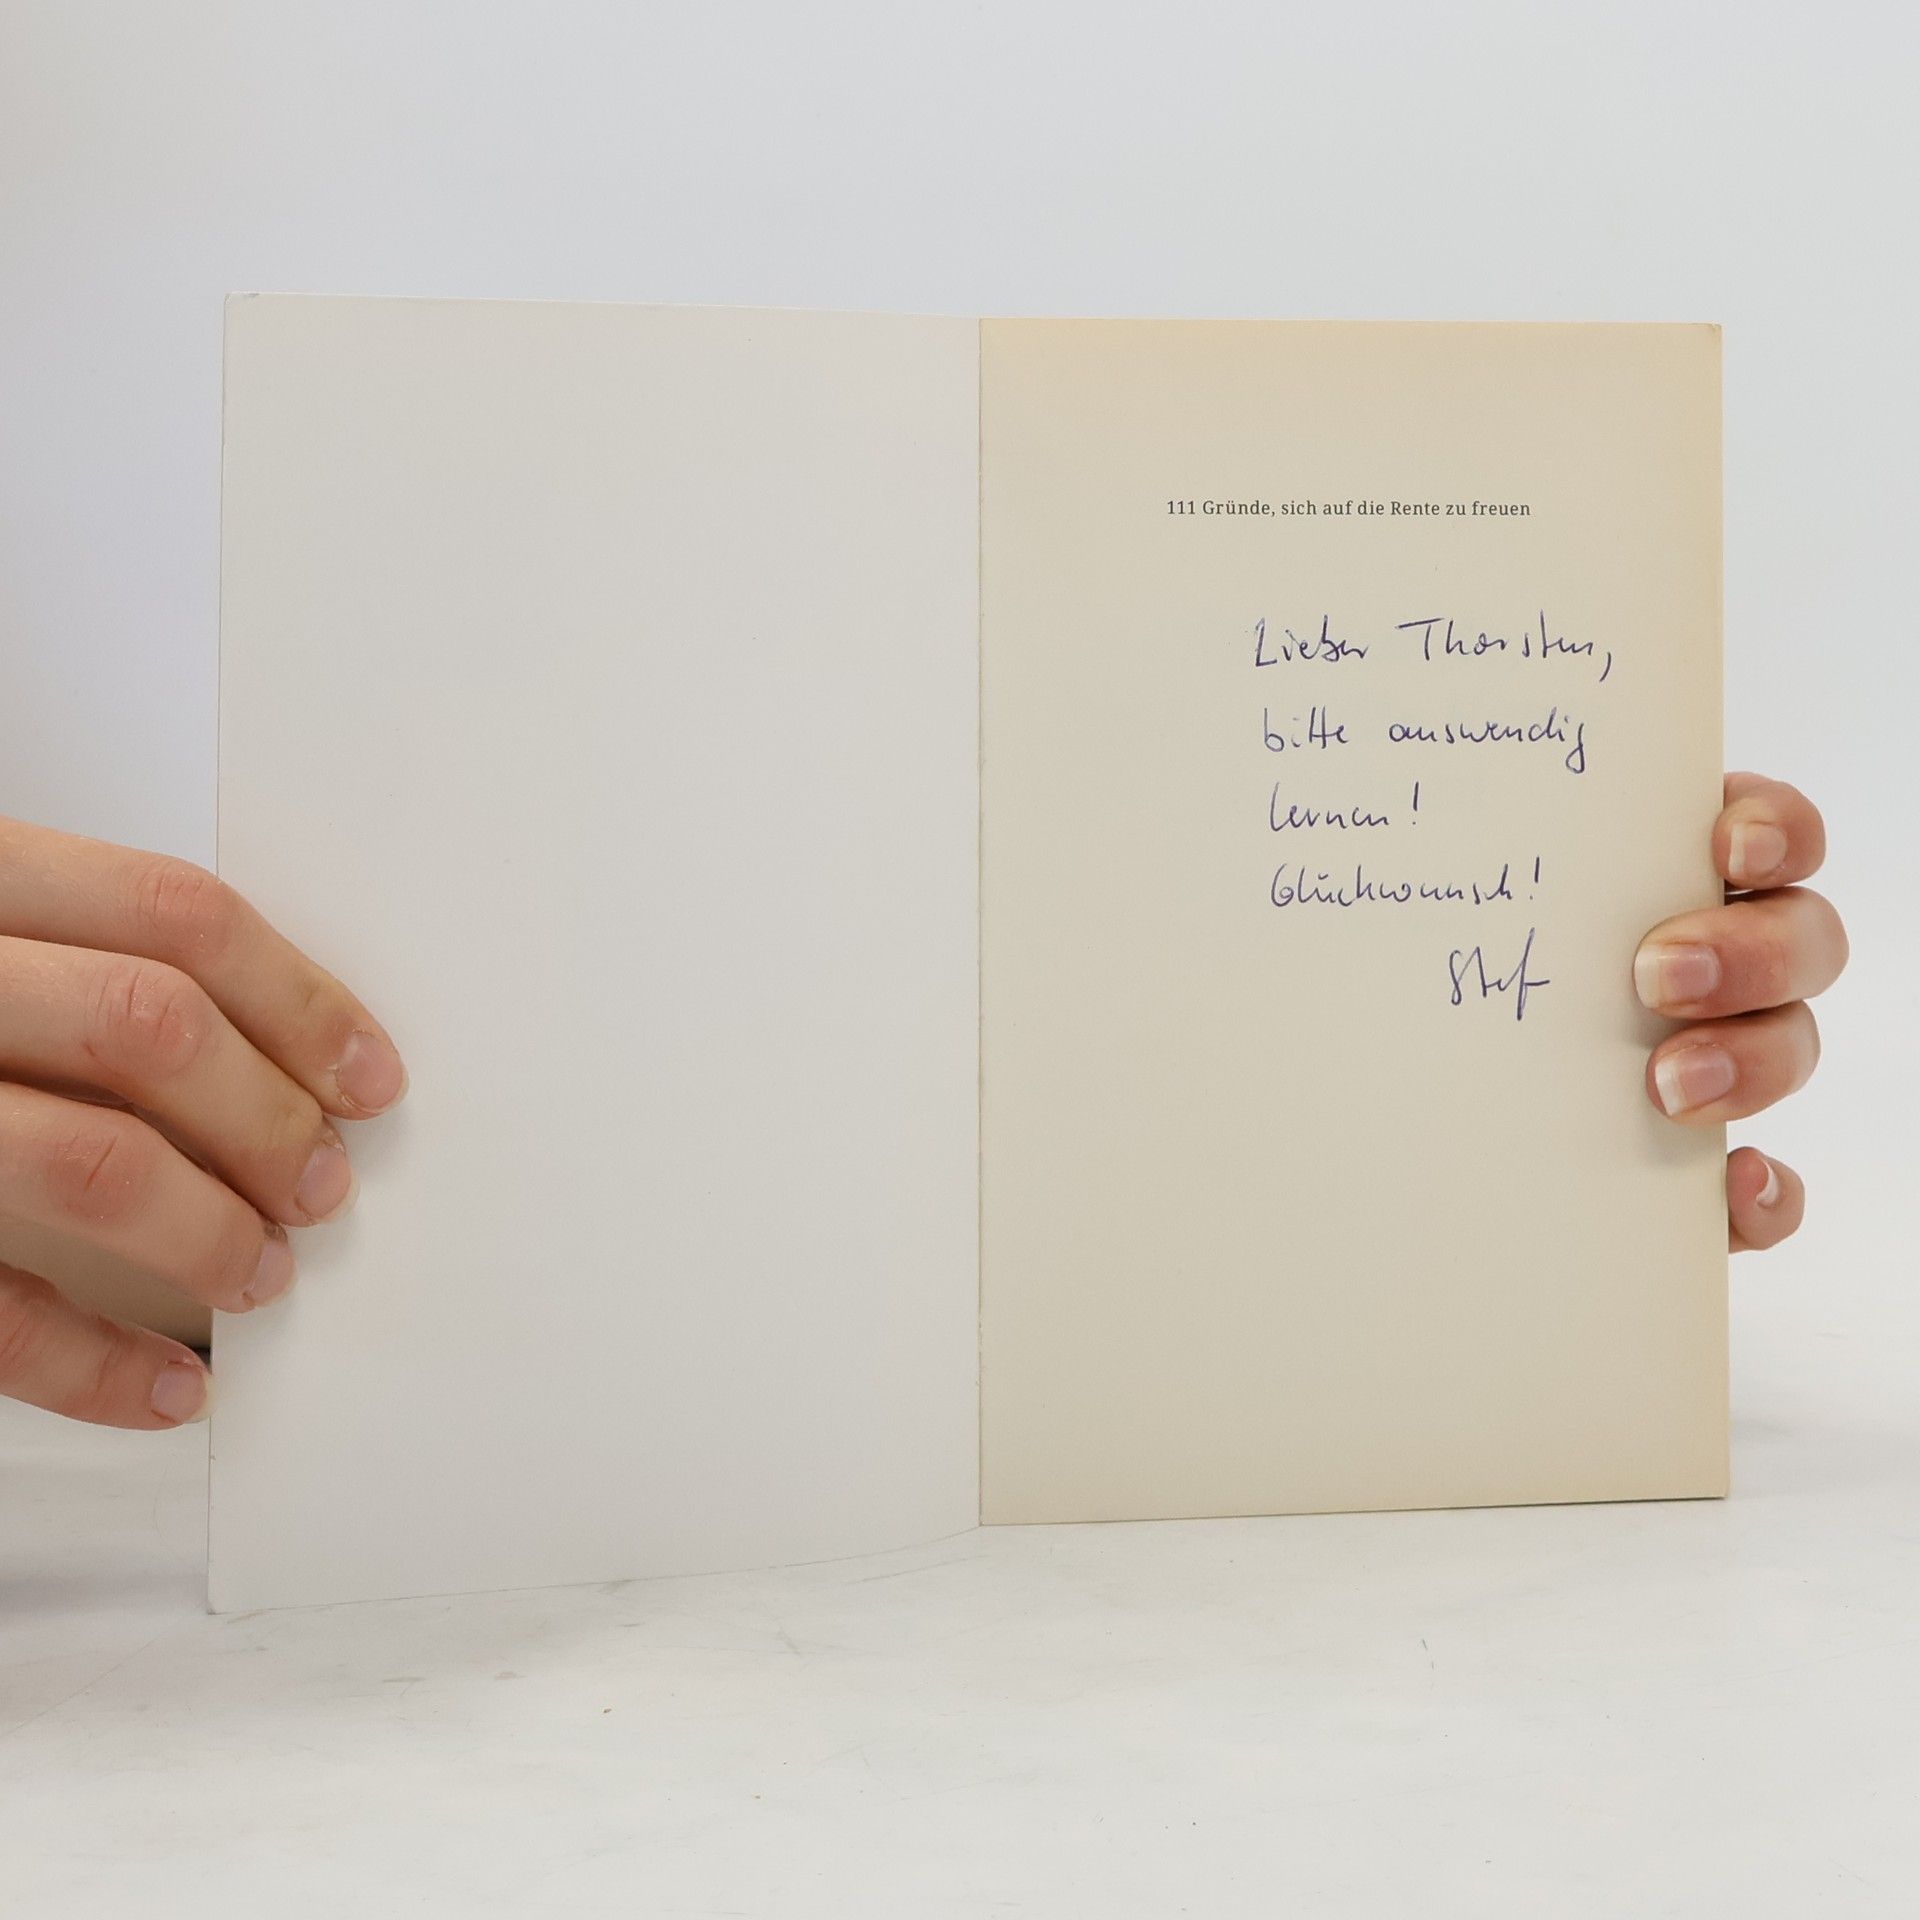 111 Gründe, sich auf die Rente zu freuen
Lieber Thorsten,
bitte auswendig
lernen!
Glückwunsch!
Stef